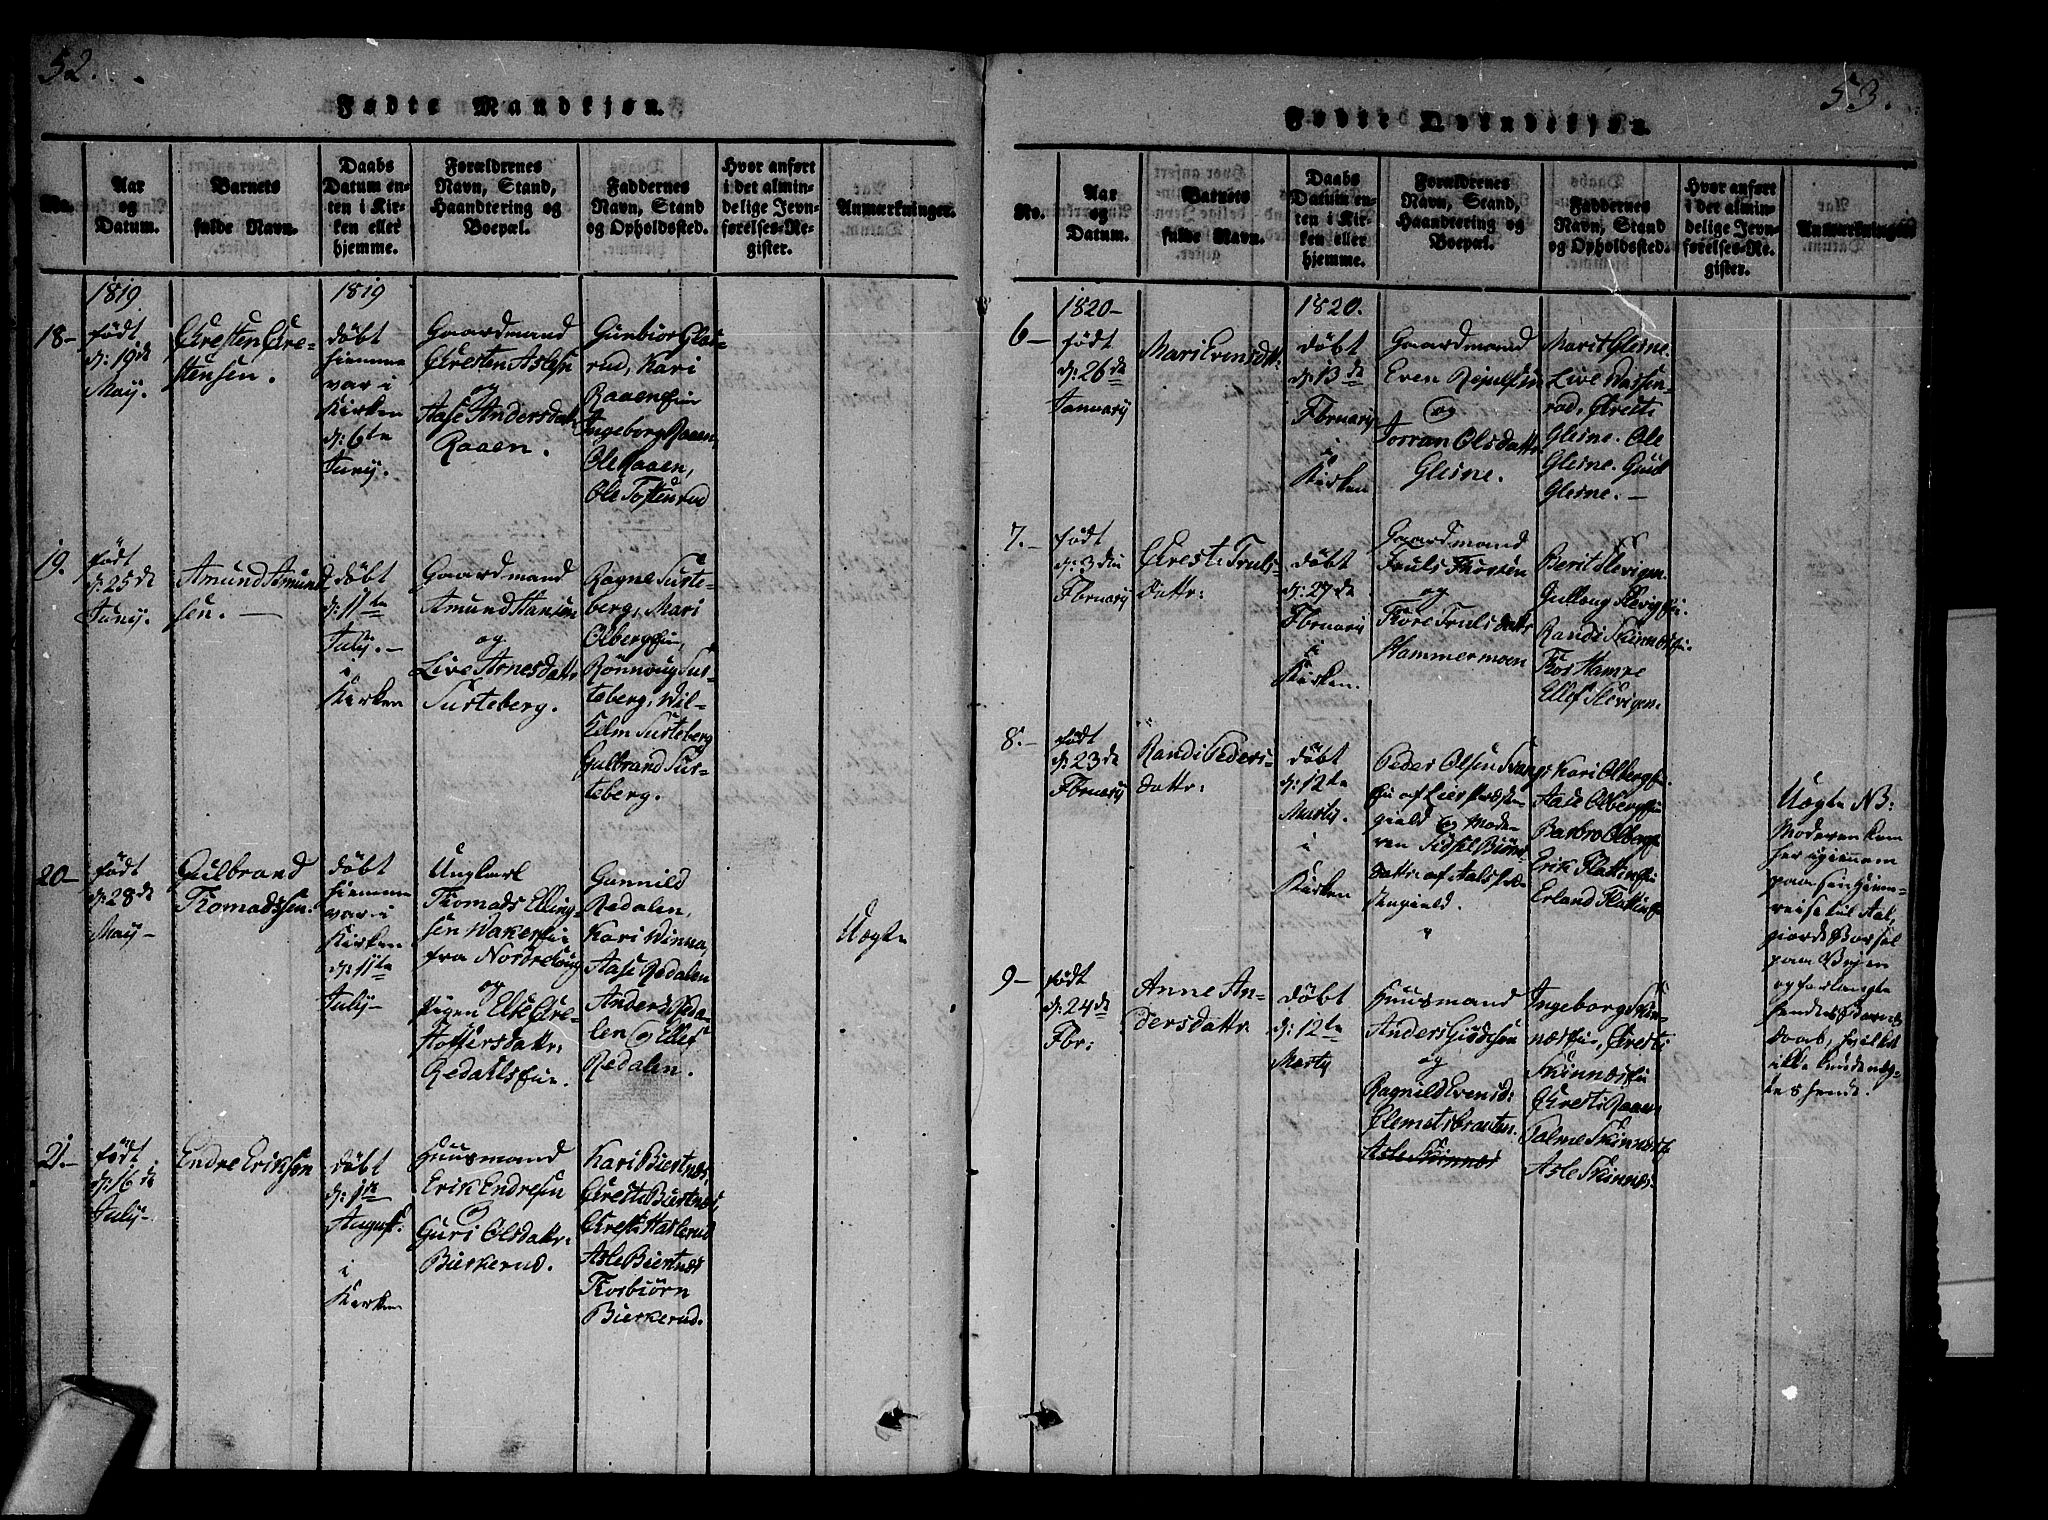 52.
Fødte Mandkjøn.
No.
Aar
og
Datum.
Barnets
fulde Navn.
Daabs
Datum en-
ten i Kir-
ken eller
hjemme.
Forældrenes
Navn, Stand,
Haandtering og
Boepæl.
Faddernes
Navn, Stand
og Opholdssted.
Hvor anført
i det almin-
delige Jevn-
førelses-Re-
gister.
Anmærkninger.
1819
18-
født
d: 19de
May.
Christen Chri-
stensen.
1819
døbt
hiemme
var i
Kirken
d: 6te
Juny.
Gaardmand
Christen Aslesen
og
Aase Andersdatr
Raaen.
Gunbior
rud, Kari
Raaen
Ingeborg Raaen,
Ole Raaen,
Ole
19.
født
d: 25de
Juny.
Amund Amund-
sen. —
døbt
d: 11te
July. -
i
Kirken
Gaardmand
Amund Hansen
og
Live Arnesdatr
Susteberg.
Ragne Suste-
berg, Mari
Olberg
Rønnoug Sus-
teberg, Wil-
helm Susteberg
Gulbrand Sus-
teberg.
20-
født
d: 28de
May-
Gulbrand
Thomadssen.
døbt
hiemme
var i
Kirken
d: 11te
July-
Ungkarl
Thomads Elling-
sen
fra
og
Pigen Else Chri-
stoffersdatr:
Gunnild
Redalen,
Kari
Aase Redalen
Anders Reda-
len og Ellef
Redalen.
Uægte
21.-
født
d: 16de
July-
Endre Eriksen
døbt
d: 1ste
August.
i
Kirken
Huusmand
Erik Endresen
og
Guri Olsdatr:
Bierkerud.
Kari Biertnæs
Christi Biertnæs
Christi Haslerud
Asle Biertnæs
Thorbiørn
Bierkerud.
53.
Fødte Qvindekjøn.
No.
Aar
og
Datum.
Barnets
fulde Navn.
Daabs
Datum en-
ten i Kir-
ken eller
hjemme.
Forældrenes
Navn, Stand,
Haandtering og
Boepæl.
Faddernes
Navn, Stand
og Opholdsted.
Hvor anført
i det almin-
delige Jevn-
førelses-Re-
gister.
Anmærkninger
1820-
6-
født
d: 26de
January
Mari Evensdtr.
1820.
døbt
d: 13de
Fbruary
i
Kirken
Gaardmand
Even
og
Jorran Olsdattr
Glesne.
Marit Glesne.
Live
rud, Christi
Glesne. Ole
Glesne. Guul
Glesne. —
7.-
født
d: 3die
Fbruary
Christi Truls-
dattr:
døbt
d: 27de
Fbruary
i
Kirken.
Gaardmand
Truls Thorsen
og
Thore Trulsdattr
Hammermoen
Berit Slevigen.
Gulloug
Randi
Thor Hamre
Ellef Slevigen.
8.-
født
d: 23de
Fbruary
Randi Peders-
dattr:
døbt
d: 12te
Marty.
i
Kirken
Peder Olsen
af Lier Præste-
gield og Mode-
ren Sidsel Biørns
dattr: af Aals Præ-
stegield.
Kari Olberg
Aase Olberg
Barbro Olberg
Erik Flatin
Erland Flatin
Uægte NB:
Moderen kom
her igiennem
paa sin Hiem-
reise til Aal,
giorde Barsel
paa
og forlangte
hendes Barns
Daab, hvilket
ikke kunde næg-
tes hende.
9-
født
d: 24de
Fbr:
Anne An-
dersdattr.
døbt
d: 12te
Marty
Huusmand
Anders
og
Ragnild Evensd:
Clemetsbraaten.
Asle Skinnes
Ingeborg Skin-
Christi
Christi Raaen
Asle Skinnes.